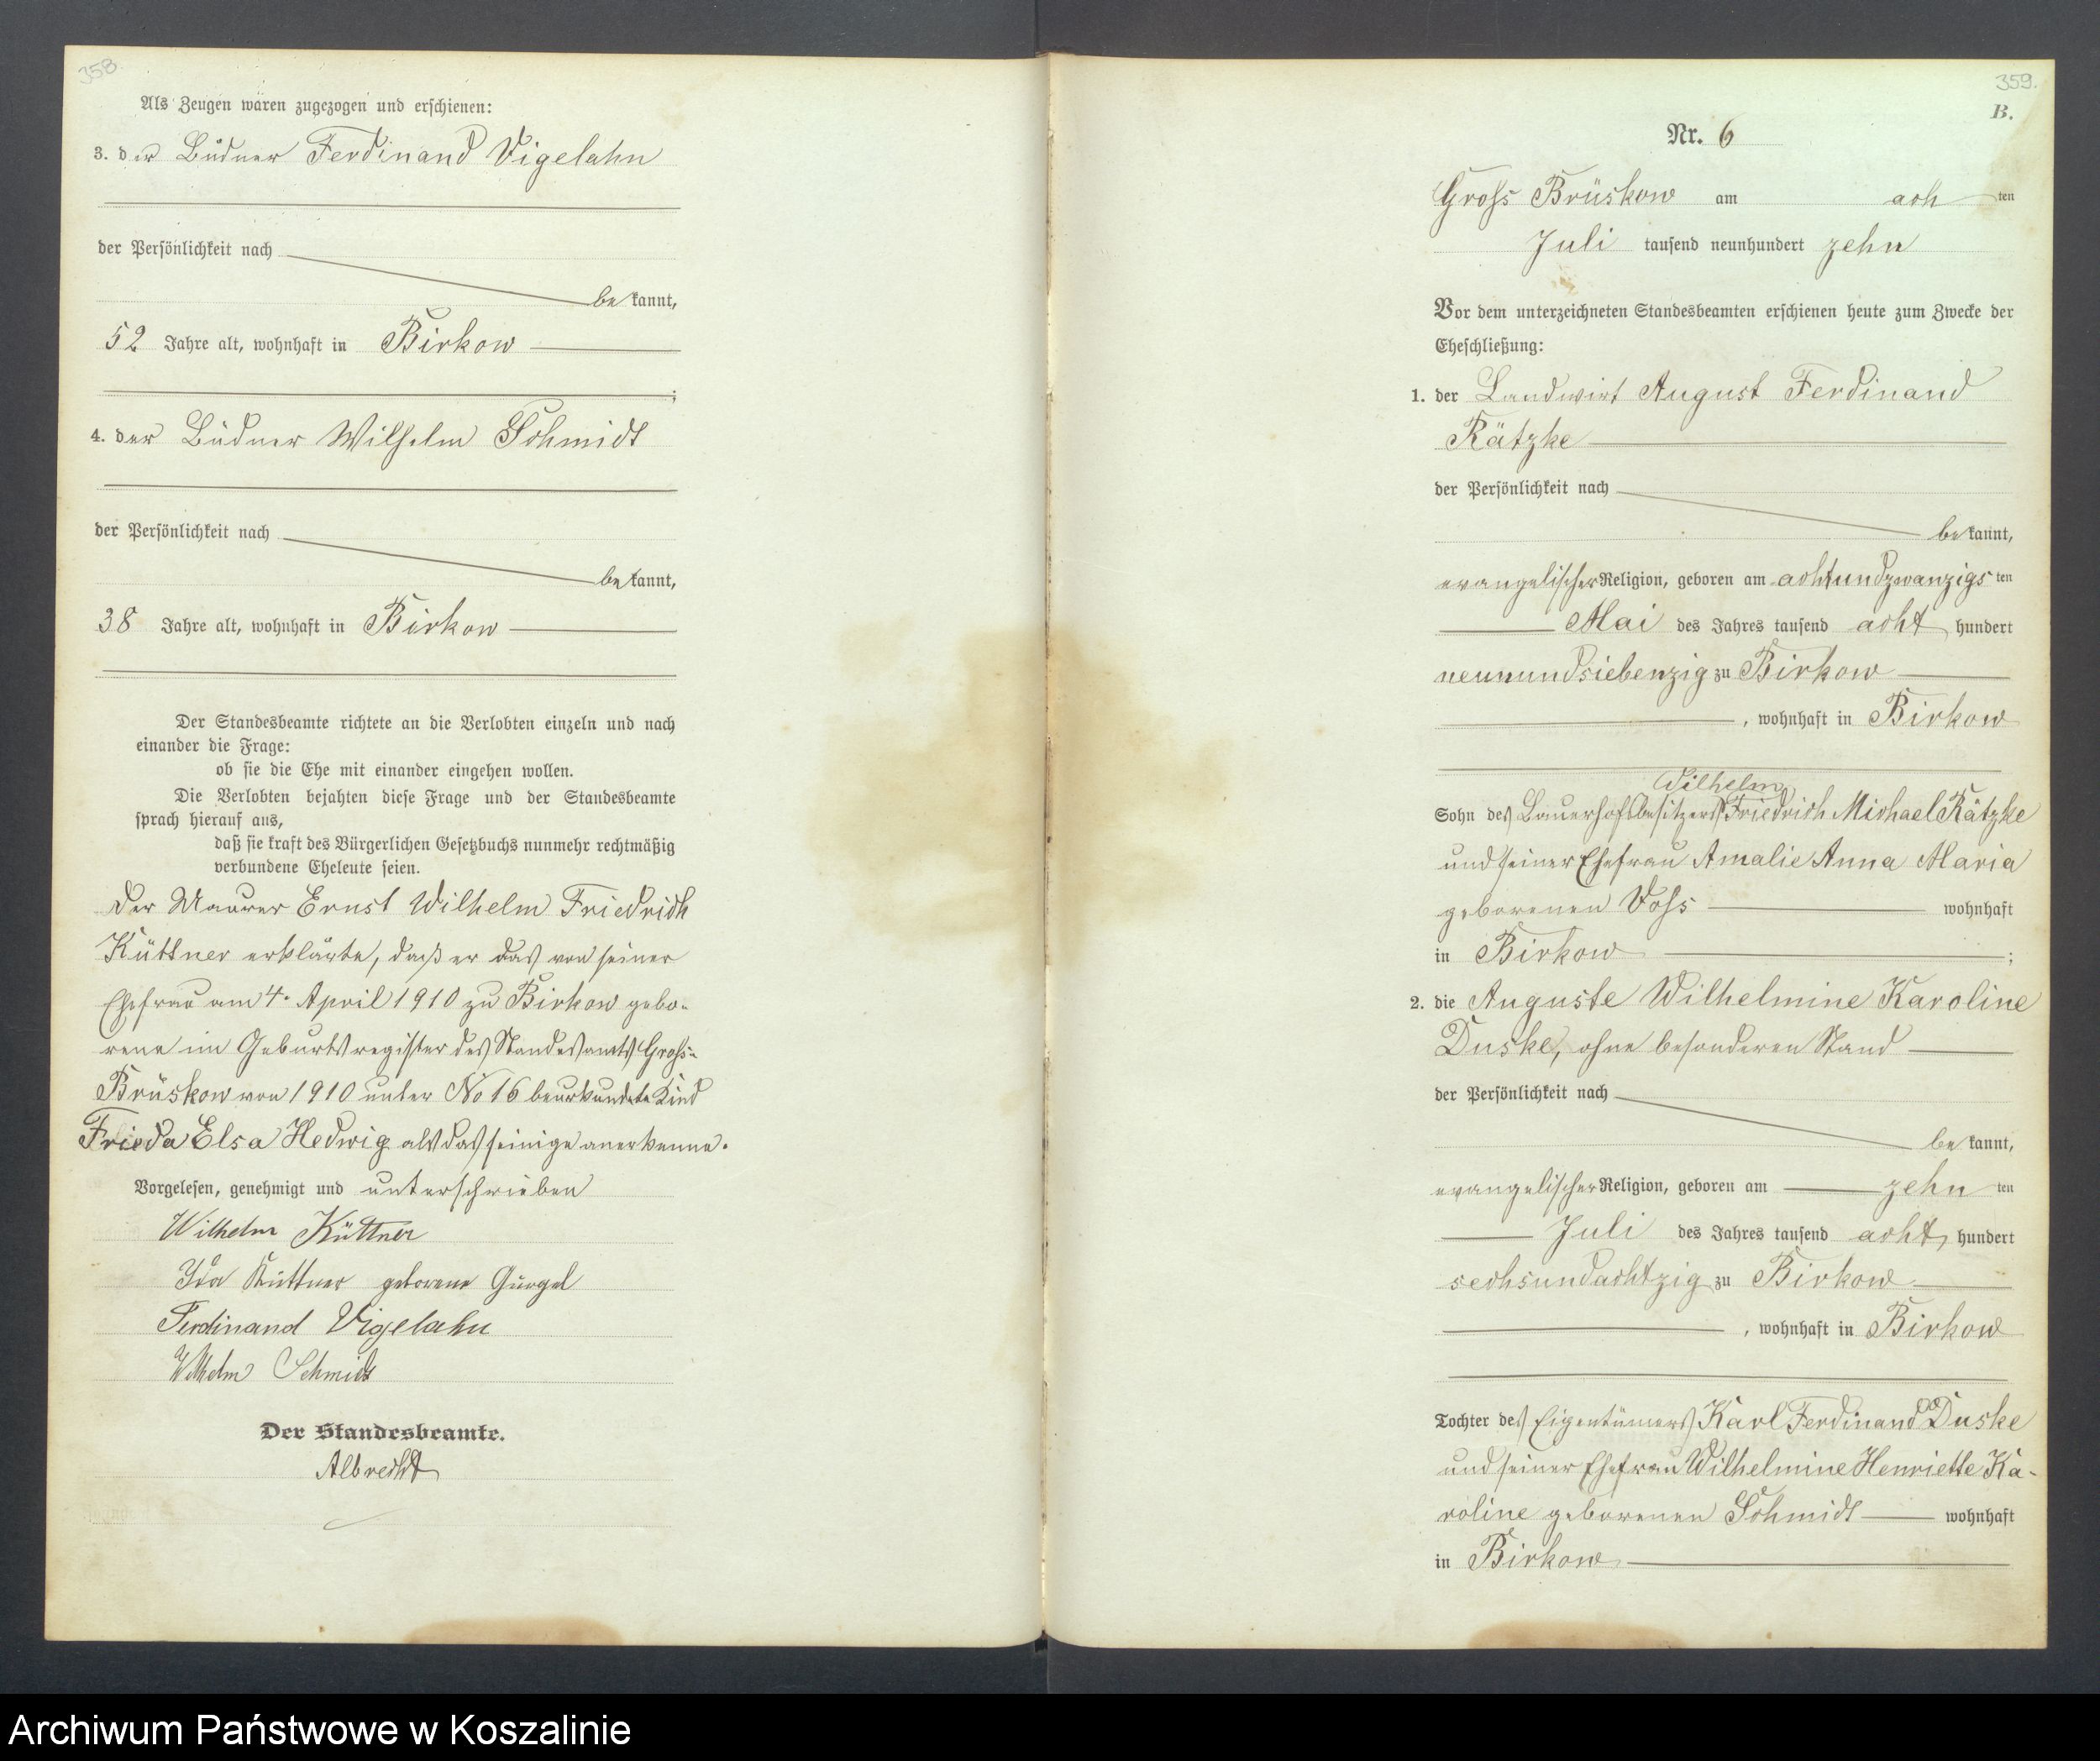 358.
Als Zeugen waren zugezogen und erschienen:
3. der Büdner Ferdinand Vigelahn
der Persönlichkeit nach
bekannt,
52 Jahre alt, wohnhaft in Birkow
;
4. der Büdner Wilhelm Schmidt
der Persönlichkeit nach
bekannt,
38 Jahre alt, wohnhaft in Birkow
Der Standesbeamte richtete an die Verlobten einzeln und nach
einander die Frage:
ob sie die Ehe mit einander eingehen wollen.
Die Verlobten bejahten diese Frage und der Standesbeamte
sprach hierauf aus,
daß sie kraft des Bürgerlichen Gesetzbuchs nunmehr rechtmäßig
verbundene Eheleute seien.
Der Maurer Ernst Wilhelm Friedrich
Küttner erklärte, daß er das von seiner
Ehefrau am 4. April 1910 zu Birkow gebo-
rene im Geburtsregister des Standesamts Gross-
Brüskow von 1910 unter No 16 beurkundete Kind
Frieda Elsa Hedwig als das seinige anerkenne.
Vorgelesen, genehmigt und unterschrieben
Wilhelm Küttner
Ida Küttner geborene Gürgel
Ferdinand Vigelahn
Wilhelm Schmidt
Der Standesbeamte.
Albrecht
359.
B.
Nr. 6
Gross Brüskow am ach ten
Juli tausend neunhundert zehn
Vor dem unterzeichneten Standesbeamten erschienen heute zum Zwecke der
Eheschließung:
1. der Landwirt August Ferdinand
Rätzke
der Persönlichkeit nach
bekannt,
evangelischer Religion, geboren am achtundzwanzigs ten
Mai des Jahres tausend acht hundert
neunundsiebenzig zu Birkow
, wohnhaft in Birkow
Wilhelm
Sohn des Bauerhofsbesitzers Friedrich Michael Rätzke
und seiner Ehefrau Amalie Anna Maria
geborenen Voss wohnhaft
in Birkow ;
2. die Auguste Wilhelmine Karoline
Duske, ohne besonderen Stand
der Persönlichkeit nach
bekannt,
evangelischer Religion, geboren am zehn ten
Juli des Jahres tausend acht hundert
sechsundachtzig zu Birkow
, wohnhaft in Birkow
Tochter des Eigentümers Karl Ferdinand Duske
und seiner Ehefrau Wilhelmine Henriette Ka-
roline geborenen Schmidt wohnhaft
in Birkow
Archiwum Państwowe w Koszalinie